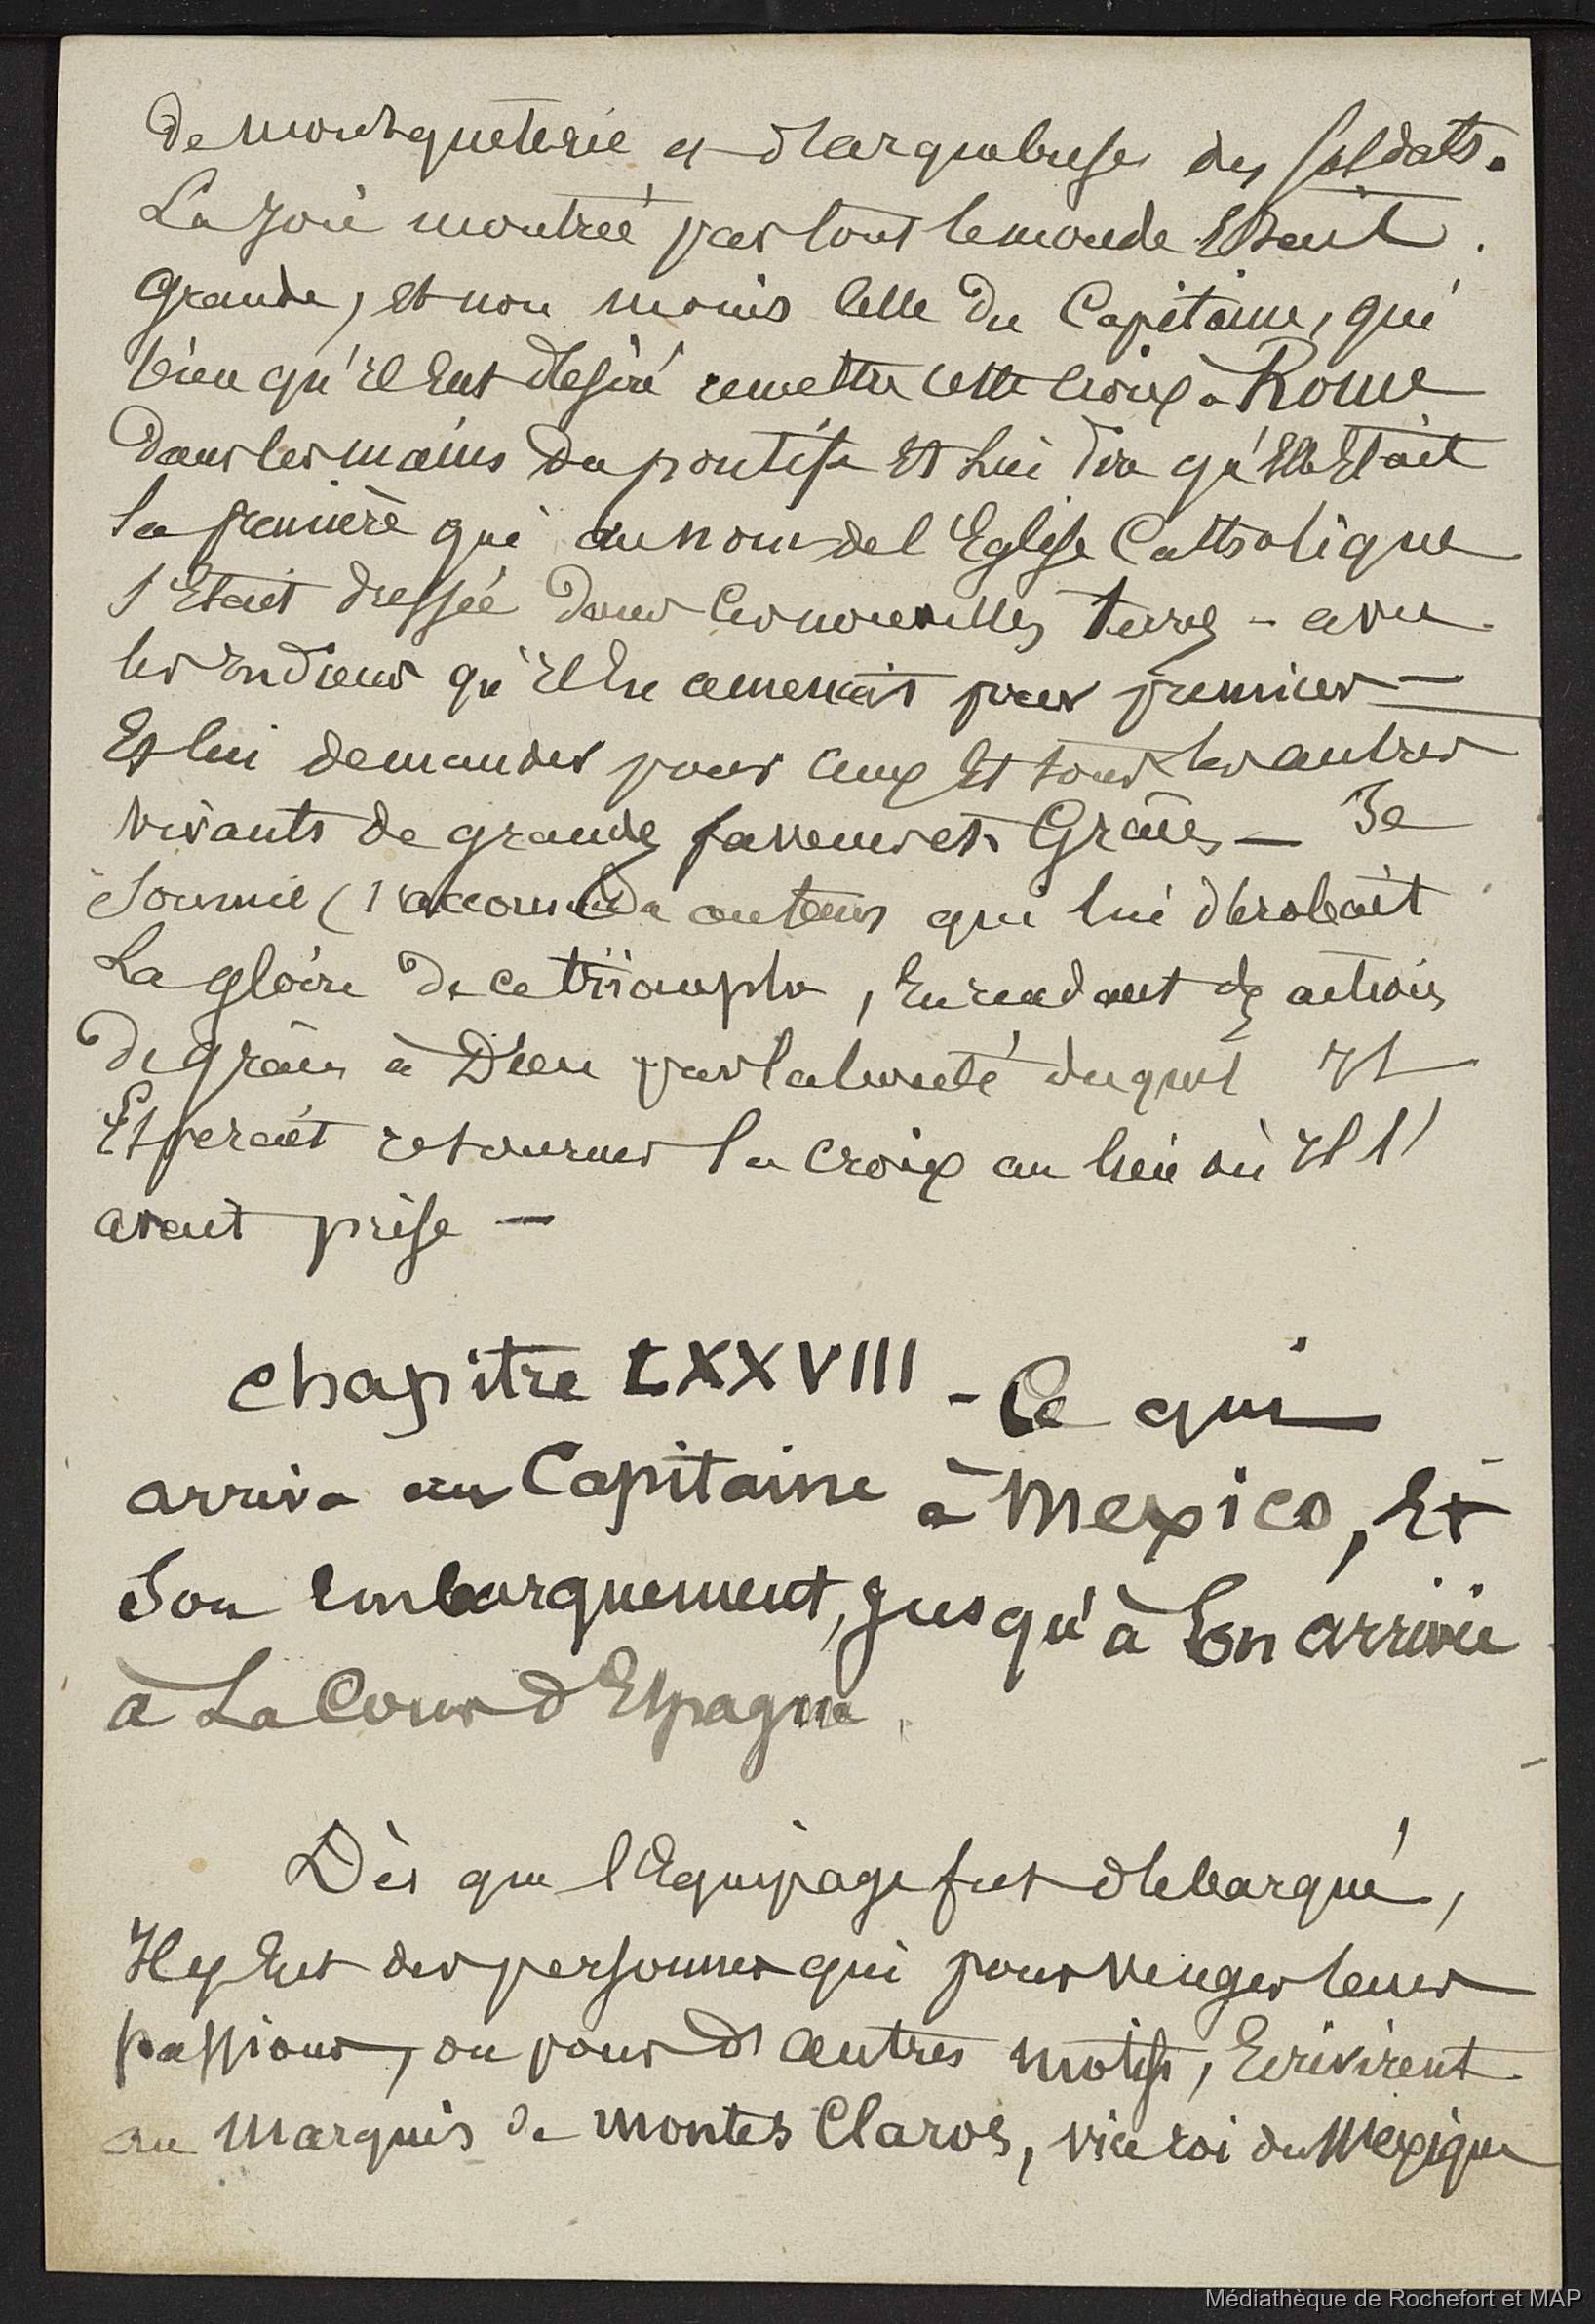 de mousqueterie et d'arquebuses des soldats.
La joie montrée par tout le monde Etait
grande, et non moins celle du Capitaine, qui
bien qu'il Eut desiré remettre cette croix à Rome
dans les mains du pontife Et lui dire qu'Elle Etait
la première qui au nom de l'Eglise Catholique
s'Etait dressée dans les nouvelles terres - avec
les Indiens qu'Il En amenait pour premices —
Et lui demander pour eux Et tous les autres
vivants de grandes faveurs et Grâces — Se
soumit (s'accomoda au temps qui lui dérobait
La gloire de ce triomphe, En rendant des actions
de grâces à Dieu par la bonté duquel Il
Esperait retourner la croix au lieu où Il l'
avait prise —
Chapitre LXXVIII - Ce qui
arriva au Capitaine à Mexico, Et
son Embarquement, jusqu'à son arrivée
à La Cour d'Espagne
Dès que l'Equipage fut debarqué,
Il y Eut des personnes qui pour venger leurs
passions, ou pour d'autres motifs, Ecrivirent
au Marquis de Montes Claros, vice roi du Mexique
Médiathèque de Rochefort et MAP